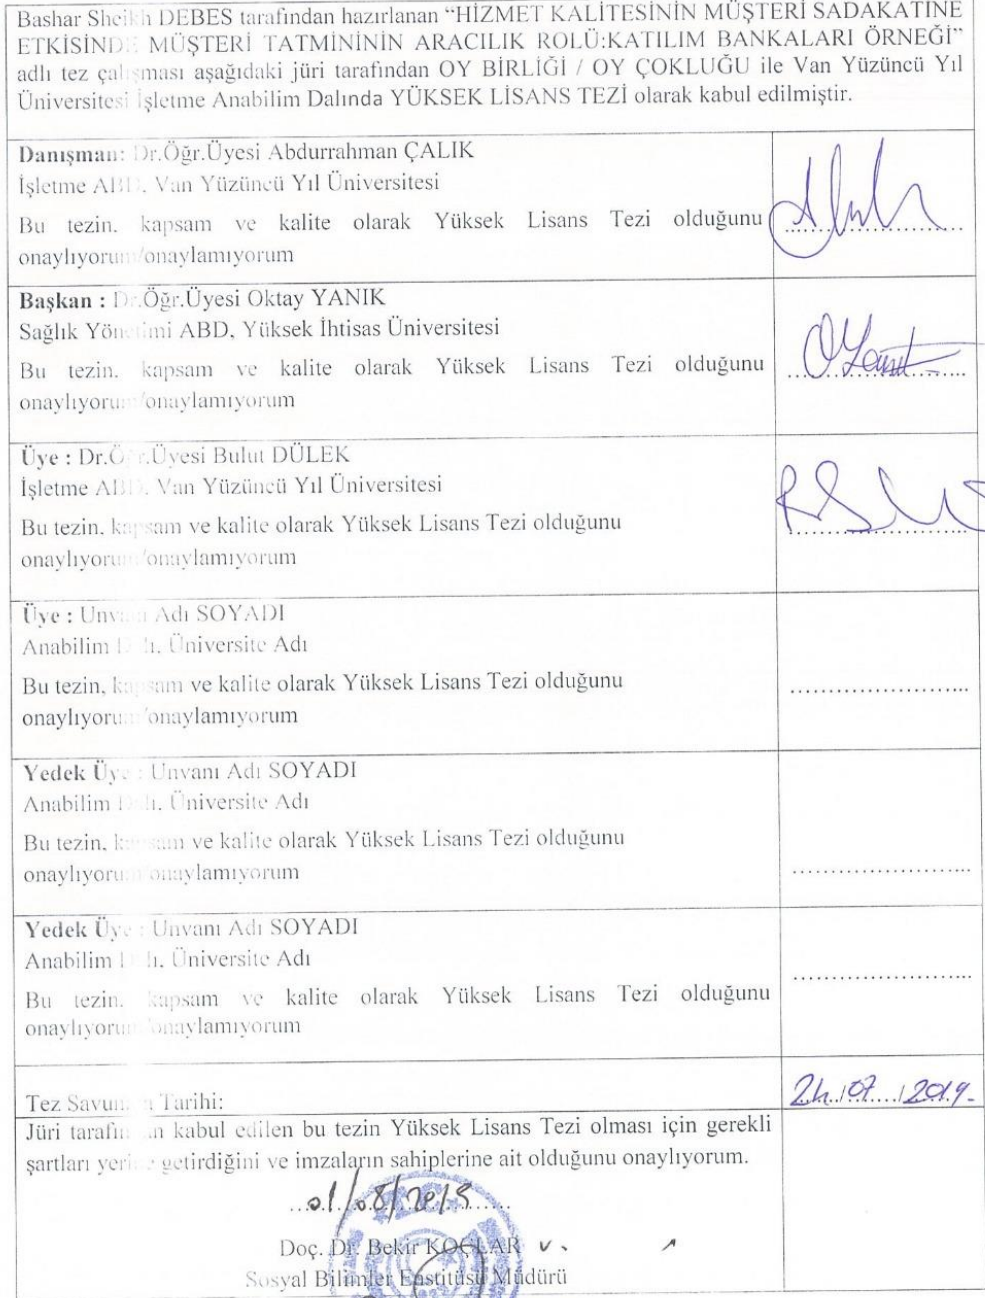 Bashar Sheikh DEBES tarafından hazırlanan “HİZMET KALİTESİNİN MÜŞTERİ SADAKATİNE
ETKİSİNDE MÜŞTERİ TATMİNİNİN ARACILIK ROLÜ:KATILIM BANKALARI ÖRNEĞİ”
adlı tez çalışması aşağıdaki jüri tarafından OY BİRLİĞİ / OY ÇOKLUĞU ile Van Yüzüncü Yıl
Üniversitesi İşletme Anabilim Dalında YÜKSEK LİSANS TEZİ olarak kabul edilmiştir.
Danışman: Dr.Öğr.Üyesi Abdurrahman ÇALIK
İşletme ABD, Van Yüzüncü Yıl Üniversitesi
Bu tezin, kapsam ve kalite olarak Yüksek Lisans Tezi olduğunu
onaylıyorum/onaylamıyorum
Başkan : Dr.Öğr.Üyesi Oktay YANIK
Sağlık Yönetimi ABD, Yüksek İhtisas Üniversitesi
Bu tezin, kapsam ve kalite olarak Yüksek Lisans Tezi olduğunu
onaylıyorum/onaylamıyorum
Üye : Dr.Öğr.Üyesi Bulut DÜLEK
İşletme ABD, Van Yüzüncü Yıl Üniversitesi
Bu tezin, kapsam ve kalite olarak Yüksek Lisans Tezi olduğunu
onaylıyorum/onaylamıyorum
Üye : Unvanı Adı SOYADI
Anabilim Dalı, Üniversite Adı
Bu tezin, kapsam ve kalite olarak Yüksek Lisans Tezi olduğunu
onaylıyorum/onaylamıyorum
Yedek Üye : Unvanı Adı SOYADI
Anabilim Dalı, Üniversite Adı
Bu tezin, kapsam ve kalite olarak Yüksek Lisans Tezi olduğunu
onaylıyorum/onaylamıyorum
Yedek Üye : Unvanı Adı SOYADI
Anabilim Dalı, Üniversite Adı
Bu tezin, kapsam ve kalite olarak Yüksek Lisans Tezi olduğunu
onaylıyorum/onaylamıyorum
Tez Savunma Tarihi: 24/07/2019
Jüri tarafından kabul edilen bu tezin Yüksek Lisans Tezi olması için gerekli
şartları yerine getirdiğini ve imzaların sahiplerine ait olduğunu onaylıyorum.
01/08/2019
Doç. Dr. Bekir KOÇLAR v.
Sosyal Bilimler Enstitüsü Müdürü